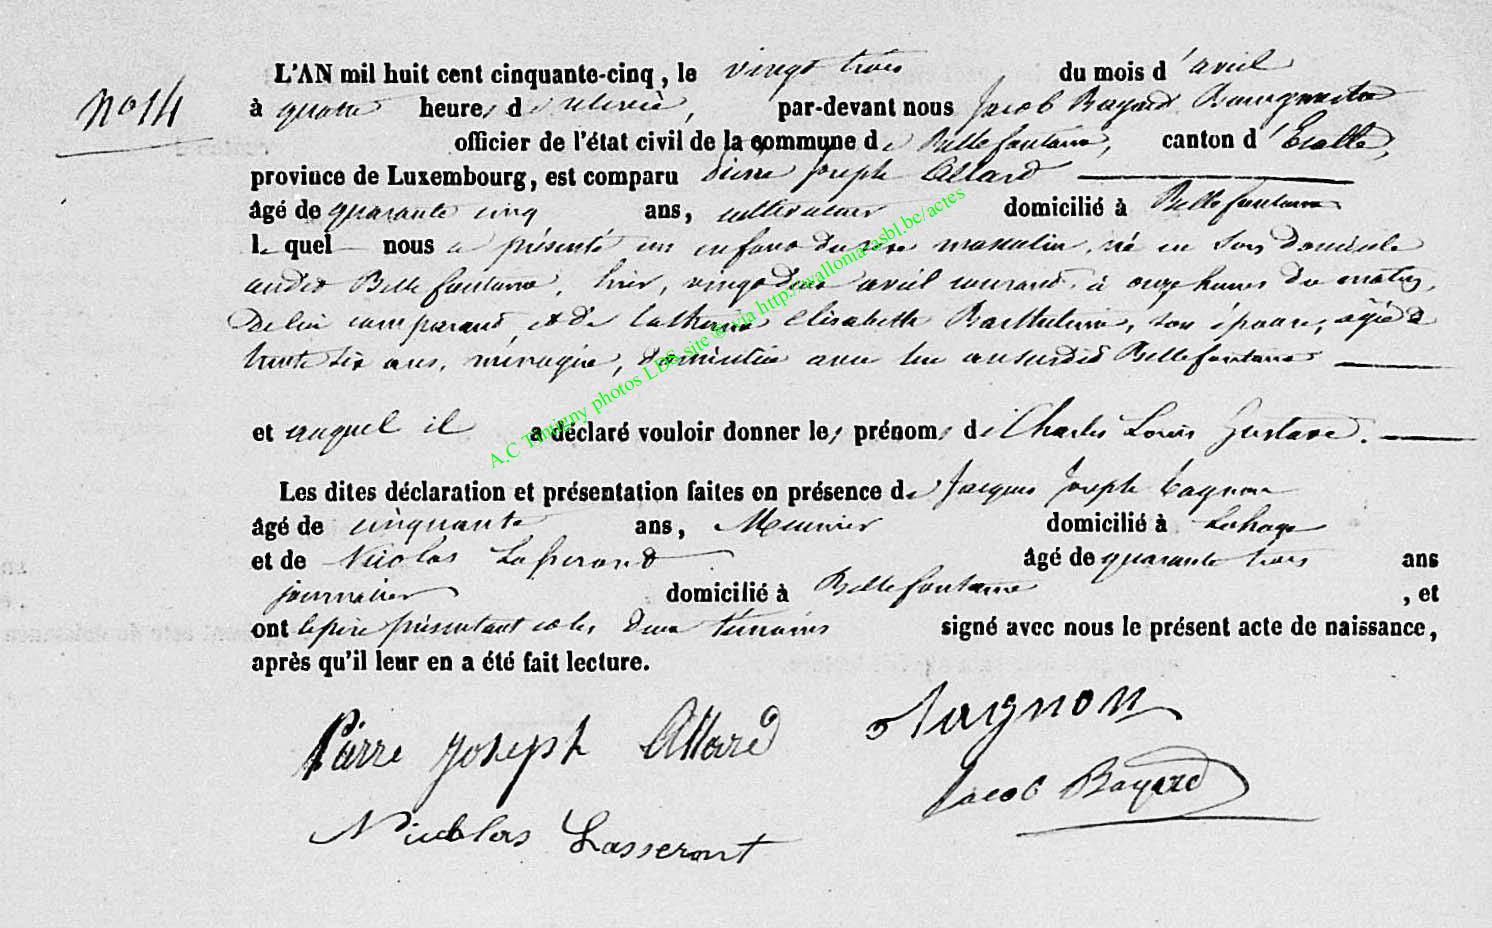 No 14
L'AN mil huit cent cinquante-cinq, le vingt trois du mois d'avril
à quatre heures de relevée, par-devant nous Jacob Bayard Bourgmestre
officier de l'état civil de la commune de Bellefontaine, canton d'Etalle,
province de Luxembourg, est comparu Pierre Joseph Allard
âgé de quarante cinq ans, cultivateur domicilié à Bellefontaine
lequel nous a présenté un enfant du sexe masculin, né en son domicile
audit Bellefontaine, hier, vingt deux avril courant, à onze heures du matin,
de lui comparant et de Catherine Elisabeth Barthelemi, son épouse, agée de
trente six ans, ménagère, domiciliée avec lui au susdit Bellefontaine
et auquel il a déclaré vouloir donner les prénoms de Charles Louis Gustave.
Les dites déclaration et présentation faites en présence de Jacques Joseph Tagnon
âgé de cinquante ans, Meunier domicilié à Lahage
et de Nicolas âgé de quarante trois ans
journalier domicilié à Bellefontaine, et
ont le père présentant et les deux témoins signé avec nous le présent acte de naissance,
après qu'il leur en a été fait lecture.
Pierre Joseph Allard Tagnon
Jacob Bayard
Nicolas Lasseront
A.C Tintigny photos LDS site @ via http://wallonia-asbl.be/actes